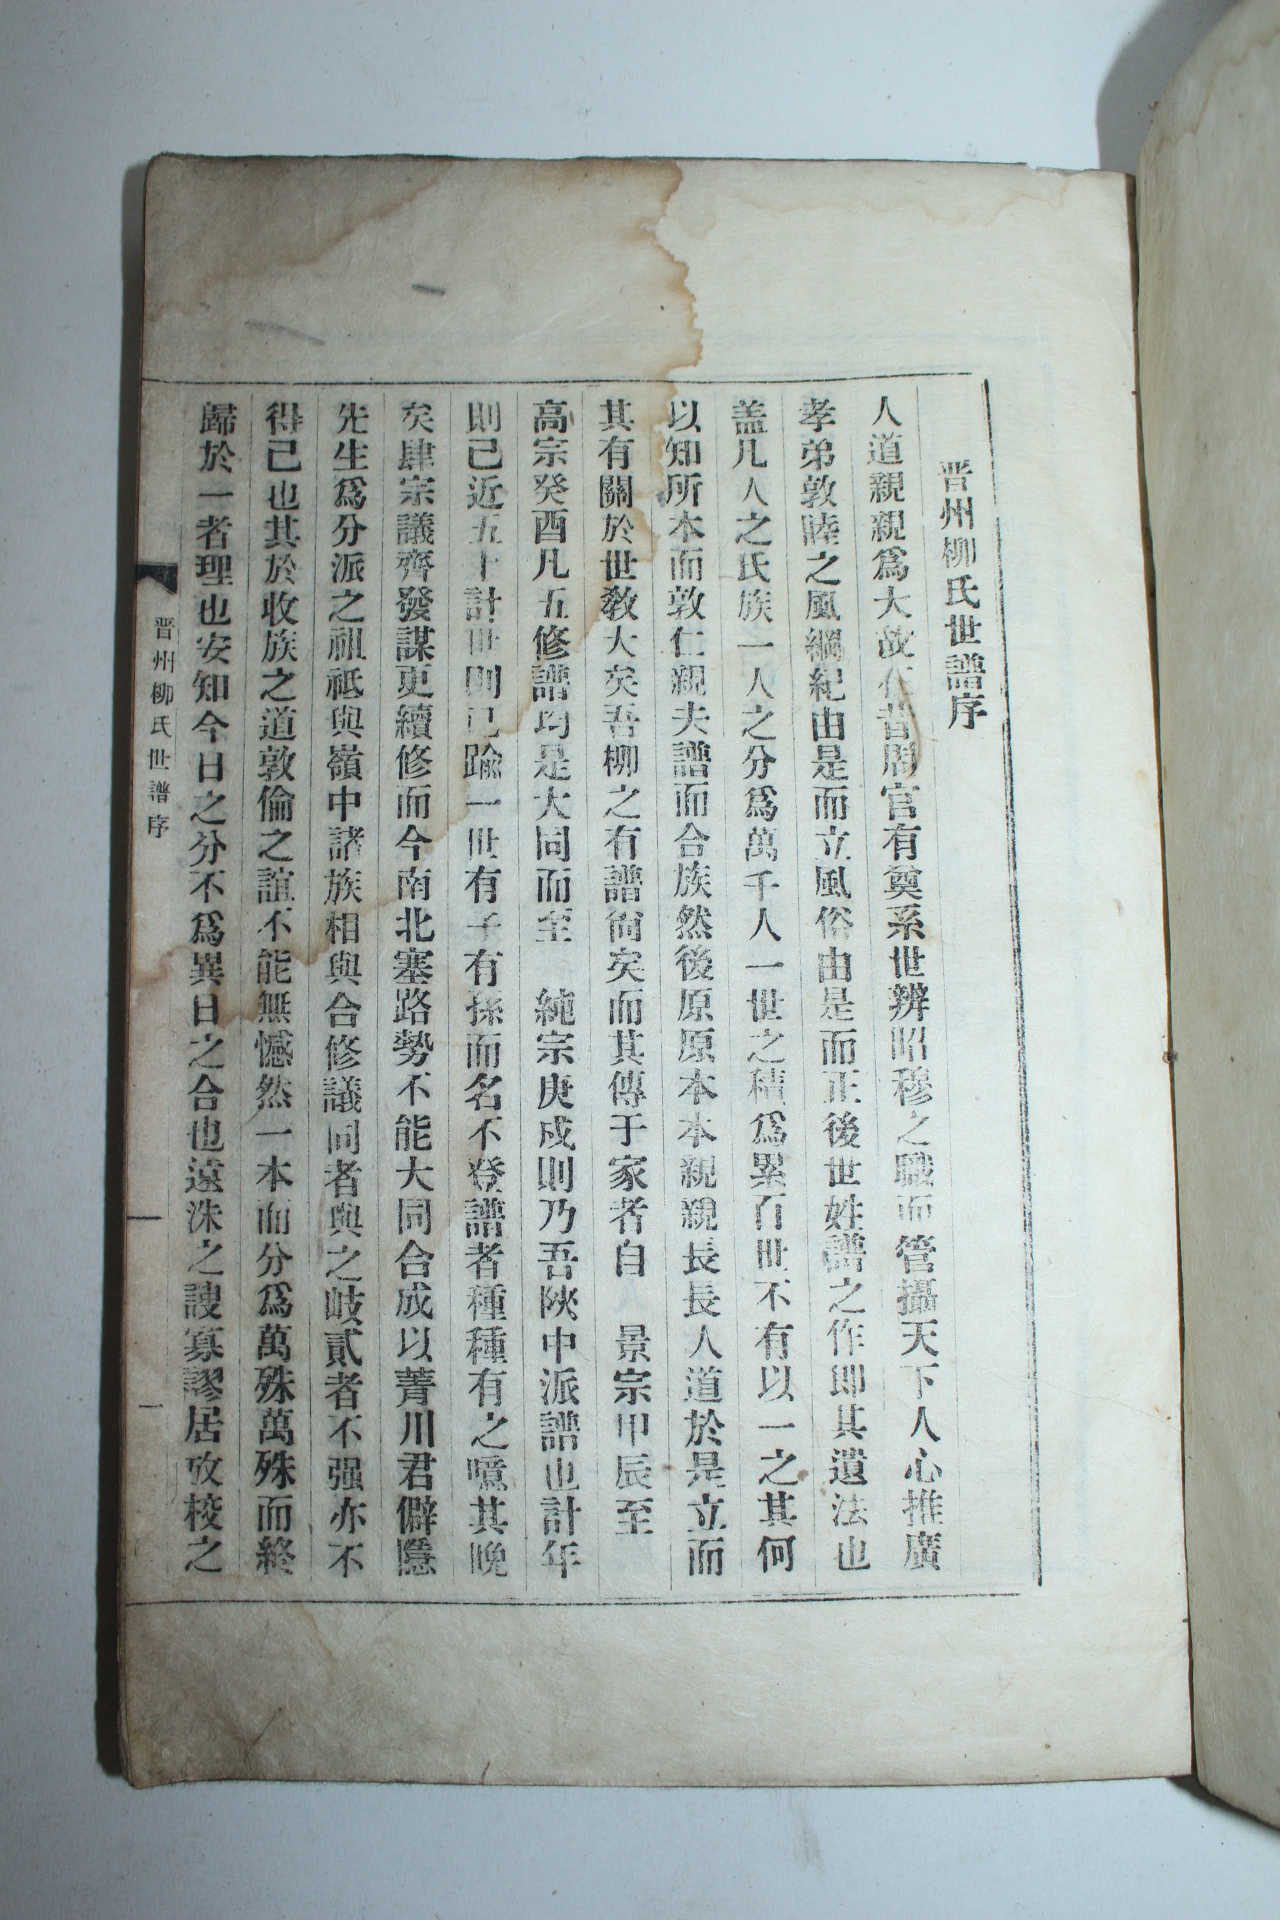 晋州柳氏世譜序
人道親親爲大故在昔周官有奠系世辨昭穆之職而管攝天下人心推廣
孝弟敦陸之風綱紀由是而立風俗由是而正後世姓譜之作即其遺法也
盖凡人之氏族一人之分爲萬千人一世之積爲累百世不有以一之其何
以知所本而敦仁親夫譜而合族然後原原本本親親長長人道於是立而
其有關於世敎大矣吾柳之有譜尙矣而其傳于家者自 景宗甲辰至
高宗癸酉凡五修譜均是大同而至 純宗庚戍則乃吾陜中派譜也計年
則已近五十計世則已踰一世有子有孫而名不登譜者種種有之噫其晚
矣肆宗議齊發謀更續修而今南北塞路勢不能大同合成以菁川君僻隱
先生爲分派之祖祗與嶺中諸族相與合修議同者與之岐貳者不强亦不
得已也其於收族之道敦倫之誼不能無憾然一本而分爲萬殊萬殊而終
歸於一者理也安知今日之分不爲異日之合也遠洙之謏寡謬居攷校之
晋州柳氏世譜序
一